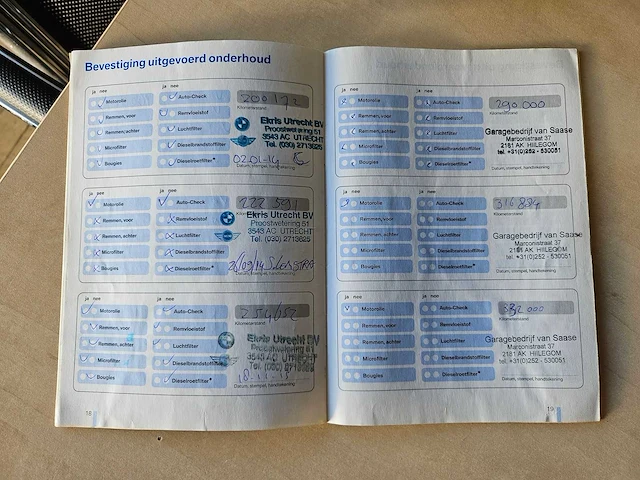 Bevestiging uitgevoerd onderhoud
ja nee ja nee
Motorolie Auto-Check
Remmen, voor Remvloeistof
Remmen, achter Luchtfilter
Microfilter Dieselbrandstoffilter
Bougies Dieselroetfilter*
Kilometerstand
Ekris Utrecht BV
Proostwetering 51
3543 AC UTRECHT
Tel. (030) 2713625
02.01.14
Datum, stempel, handtekening
ja nee ja nee
Motorolie Auto-Check
Remmen, voor Remvloeistof
Remmen, achter Luchtfilter
Microfilter Dieselbrandstoffilter
Bougies Dieselroetfilter*
222 591
Ekris Utrecht BV
Proostwetering 51
3543 AC UTRECHT
Tel. (030) 2713625
Datum, stempel, handtekening
ja nee ja nee
Motorolie Auto-Check
Remmen, voor Remvloeistof
Remmen, achter Luchtfilter
Microfilter Dieselbrandstoffilter
Bougies Dieselroetfilter*
254152
Kilometerstand
Ekris Utrecht BV
Proostwetering 51
3543 AC UTRECHT
Tel. (030) 2713625
Datum, stempel, handtekening
18
ja nee ja nee
Motorolie Auto-Check
Remmen, voor Remvloeistof
Remmen, achter Luchtfilter
Microfilter Dieselbrandstoffilter
Bougies Dieselroetfilter*
290.000
Kilometerstand
Garagebedrijf van Saase
Marconistraat 37
2181 AK HILLEGOM
tel. +31(0)252 - 530051
Datum, stempel, handtekening
ja nee ja nee
Motorolie Auto-Check
Remmen, voor Remvloeistof
Remmen, achter Luchtfilter
Microfilter Dieselbrandstoffilter
Bougies Dieselroetfilter*
316884
Kilometerstand
Garagebedrijf van Saase
Marconistraat 37
2181 AK HILLEGOM
tel. +31(0)252 - 530051
Datum, stempel, handtekening
ja nee ja nee
Motorolie Auto-Check
Remmen, voor Remvloeistof
Remmen, achter Luchtfilter
Microfilter Dieselbrandstoffilter
Bougies Dieselroetfilter*
Kilometerstand
Garagebedrijf van Saase
Marconistraat 37
2181 AK HILLEGOM
tel. +31(0)252 - 530051
Datum, stempel, handtekening
19